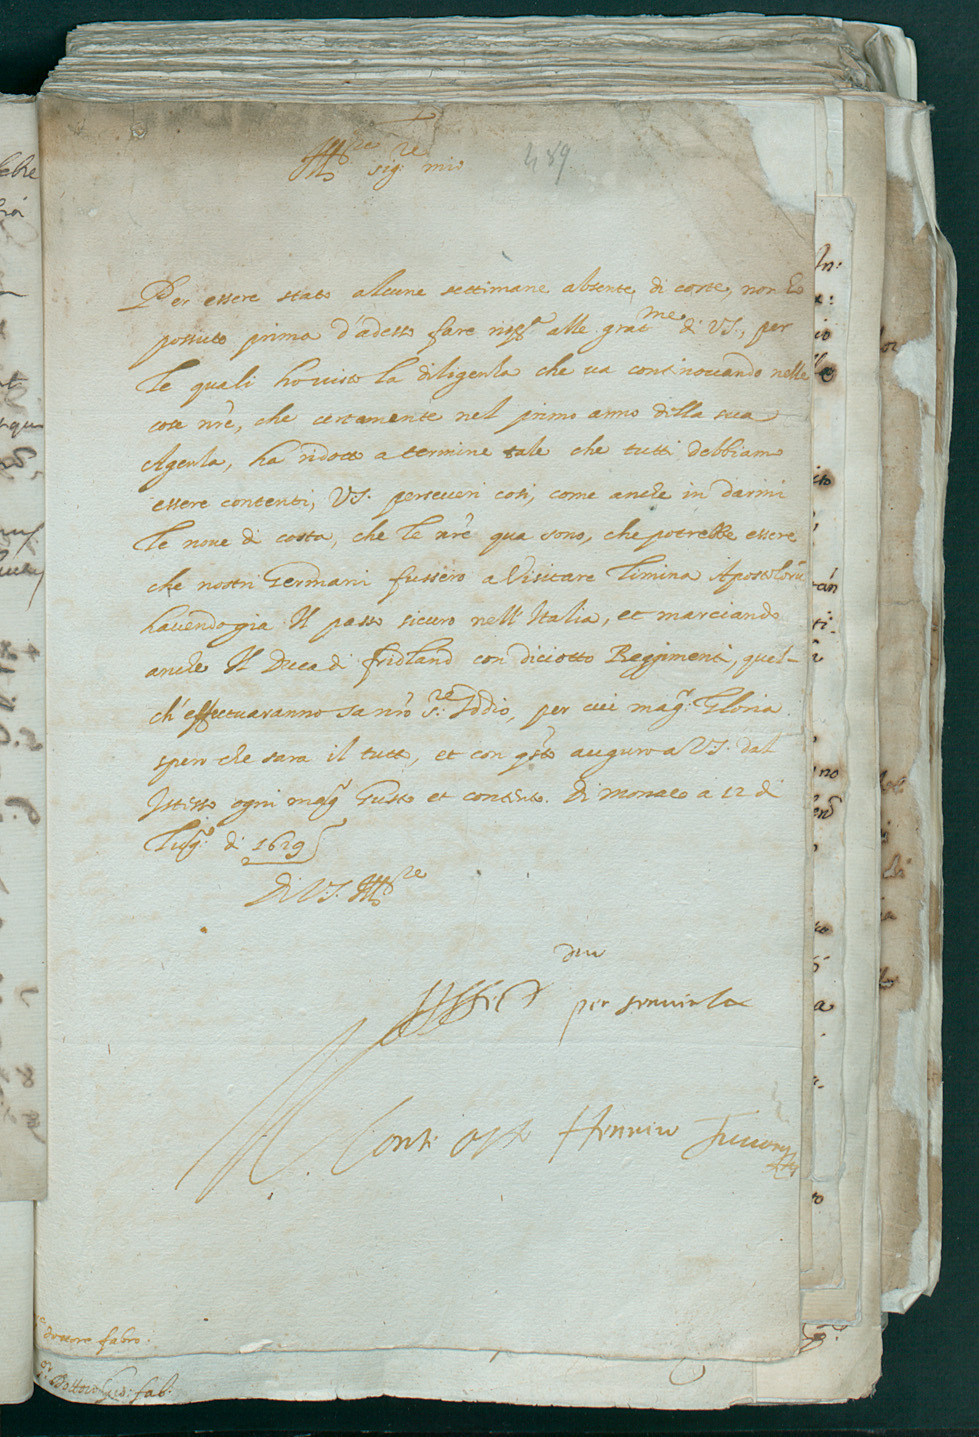 Ill.re Sig.re mio
489.
Per essere stato alcune settimane absente di corte, non ho
possuto prima d'adesso fare risp.ta alle grat.me di VS., per
le quali ho visto la diligenza che va continovando nelle
cose nr̃e, che certamente nel primo anno della sua
Agenza, ha ridotto a termine tale che tutti debbiamo
essere contenti, VS. perseveri cosi, come anche in darmi
le nove di costa, che le nr̃e qua sono, che potrebbe essere
che nostri Germani fussero a visitare limina Apostolorũ
havendo gia il passo sicuro nell'Italia, et marciando
anche il Duca di Fridland con diciotto Reggimenti, quel-
ch'effectuaranno sa nr̃o S.re Iddio, per cui mag.r Gloria
spero che sara il tutto, et con q̃sto auguro a VS. dal
Istesso ogni mag.r Gusto et contento. Di Monaco a 12 di
Lug.o di 1629
Di V.S. Ill.re
per servirla
Conte Ott Henrico Fuccari
dottore fabro.
Dottore Gio: fab.